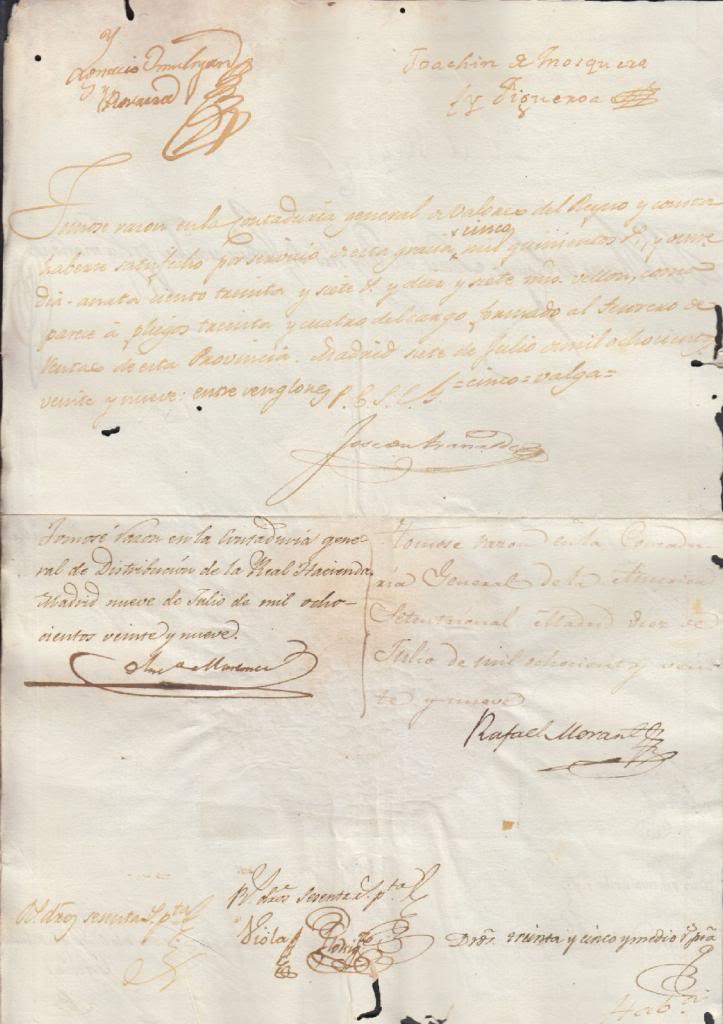 Ignacio Omulryan
y Rovira
Joachin de Mosquera
y Figueroa
Tomose razon en la Contaduría general de Valores del Reyno y consta
haberse satisfecho por servicio de esta gracia cinco mil quinientos r.s, y
dia-anata ciento treinta y siete r.s y diez y siete mrs. vellon, como
parece á pliegos treinta y cuatro del cargo, firmado al Tesorero de
Rentas de esta Provincia. Madrid siete de Julio de mil ochocientos
veinte y nueve: entre renglones =cinco=valga=
P. E. S. C. G.
Tomose razon en la Contaduria gene-
ral de Distribucion de la Real Hacienda.
Madrid nueve de Julio de mil ocho-
cientos veinte y nueve.
Tomose razon en la Contadu-
ria General de la America
Setentrional Madrid diez de
Julio de mil ochocientos y vein-
te y nueve
Rafael Morant
R. dros sesenta r.s pta
Viola
dros sesenta r.s pta
Dros. treinta y cinco y medio r.s pta